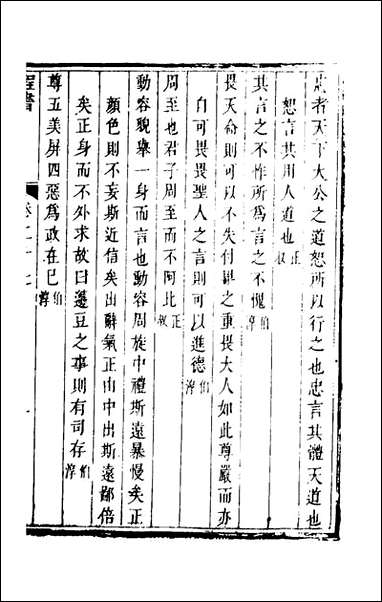 忠者天下大公之道恕所以行之也忠言其體天道也
恕言其用人道也正叔
其言之不怍所爲言之不愧伯淳
畏天命則可以不失付畀之重畏大人如此尊嚴而亦
自可畏畏聖人之言則可以進德伯淳
周至也君子周至而不阿比正叔
動容貌舉一身而言也動容周旋中禮斯遠暴慢矣正
顏色則不妄斯近信矣出辭氣正由中出斯遠鄙倍
矣正身而不外求故曰籩豆之事則有司存伯淳
尊五美屏四惡爲政在巳伯淳
程書